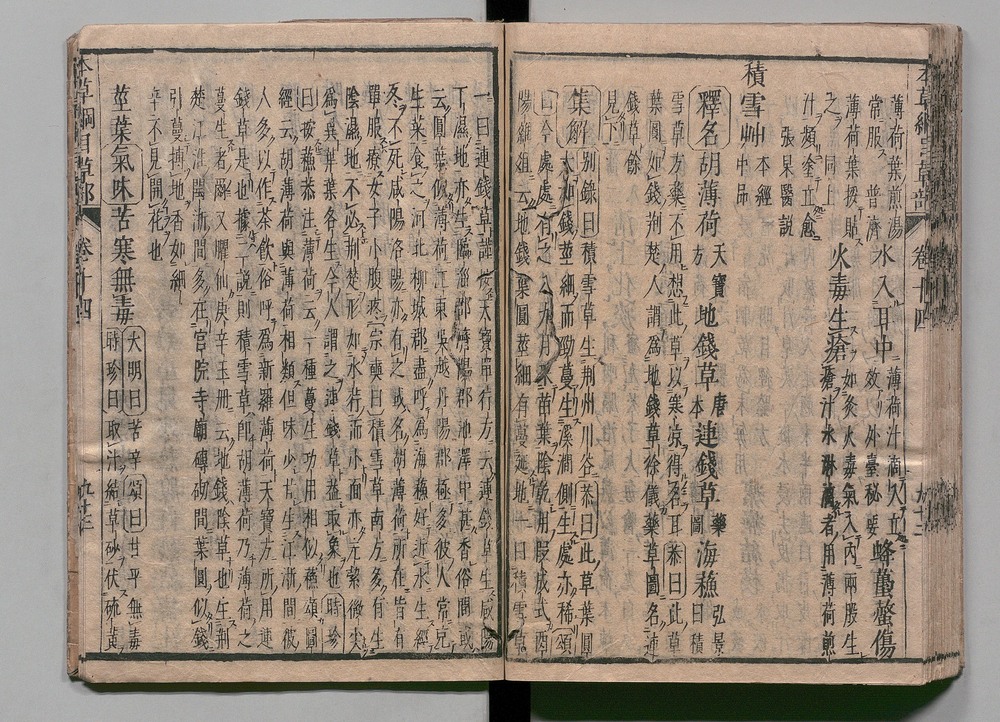 薄荷葉煎湯 水入耳中 薄荷汁滴入立 蜂蠆螫傷
常服 普濟 效 外臺秘要
薄荷葉挼貼 火毒生瘡 如灸火毒氣入內兩股生
之 同上 瘡汁水淋漓者用薄荷煎
汁頻塗立愈
張杲醫說
積雪艸 本經中品
釋名 胡薄荷 天寶方 地錢草 唐本 連錢草 藥圖 海蘓 弘景曰積
雪草方藥不用想此草以寒凉得名耳恭曰此草
葉圓如錢荆楚人謂為地錢草徐儀藥草圖名連
錢草餘
見下
集解 別錄曰積雪草生荆州川谷恭曰此草葉圓
大如錢莖細而勁蔓生溪澗側生處亦稀頌
曰今處處有之八九月采苗葉陰乾用段成式酉
陽雜俎云地錢葉圓莖細有蔓延地一曰積雪草
一曰連錢草謹按天寶單行方云連錢草生咸陽
下濕地亦生臨淄郡濟陽郡池澤中甚香俗間或
云圓葉似薄荷江東吳越丹陽郡極多彼人常充
生菜食之河北柳城郡盡呼為海蘓好近水生經
冬不死咸陽洛陽亦有之或名胡薄荷所在皆有
單服療女子小腹疼宗奭曰積雪草南方多有生
陰濕地不必荆楚形如水荇而小面亦光潔微尖
為異葉葉各生今人謂之連錢草蓋取象也 時珍
曰按蘓恭注薄荷云一種蔓生功用相似蘓頌圖
經云胡薄荷與薄荷相類但味少甘生江浙間彼
人多以作茶飲俗呼為新羅薄荷天寶方所用連
錢草是也據二說則積雪草即胡薄荷乃薄荷之
蔓生者爾又臞仙庚辛玉冊云地錢陰草也生荆
楚江淮閩浙間多在宮院寺廟磚砌間葉圓似錢
引蔓摶地香如細
辛不見開花也
莖葉氣味苦寒無毒 大明曰苦辛頌曰甘平無毒
時珍曰取汁結草砂伏硫黃
本草綱目草部 卷十四 九十二